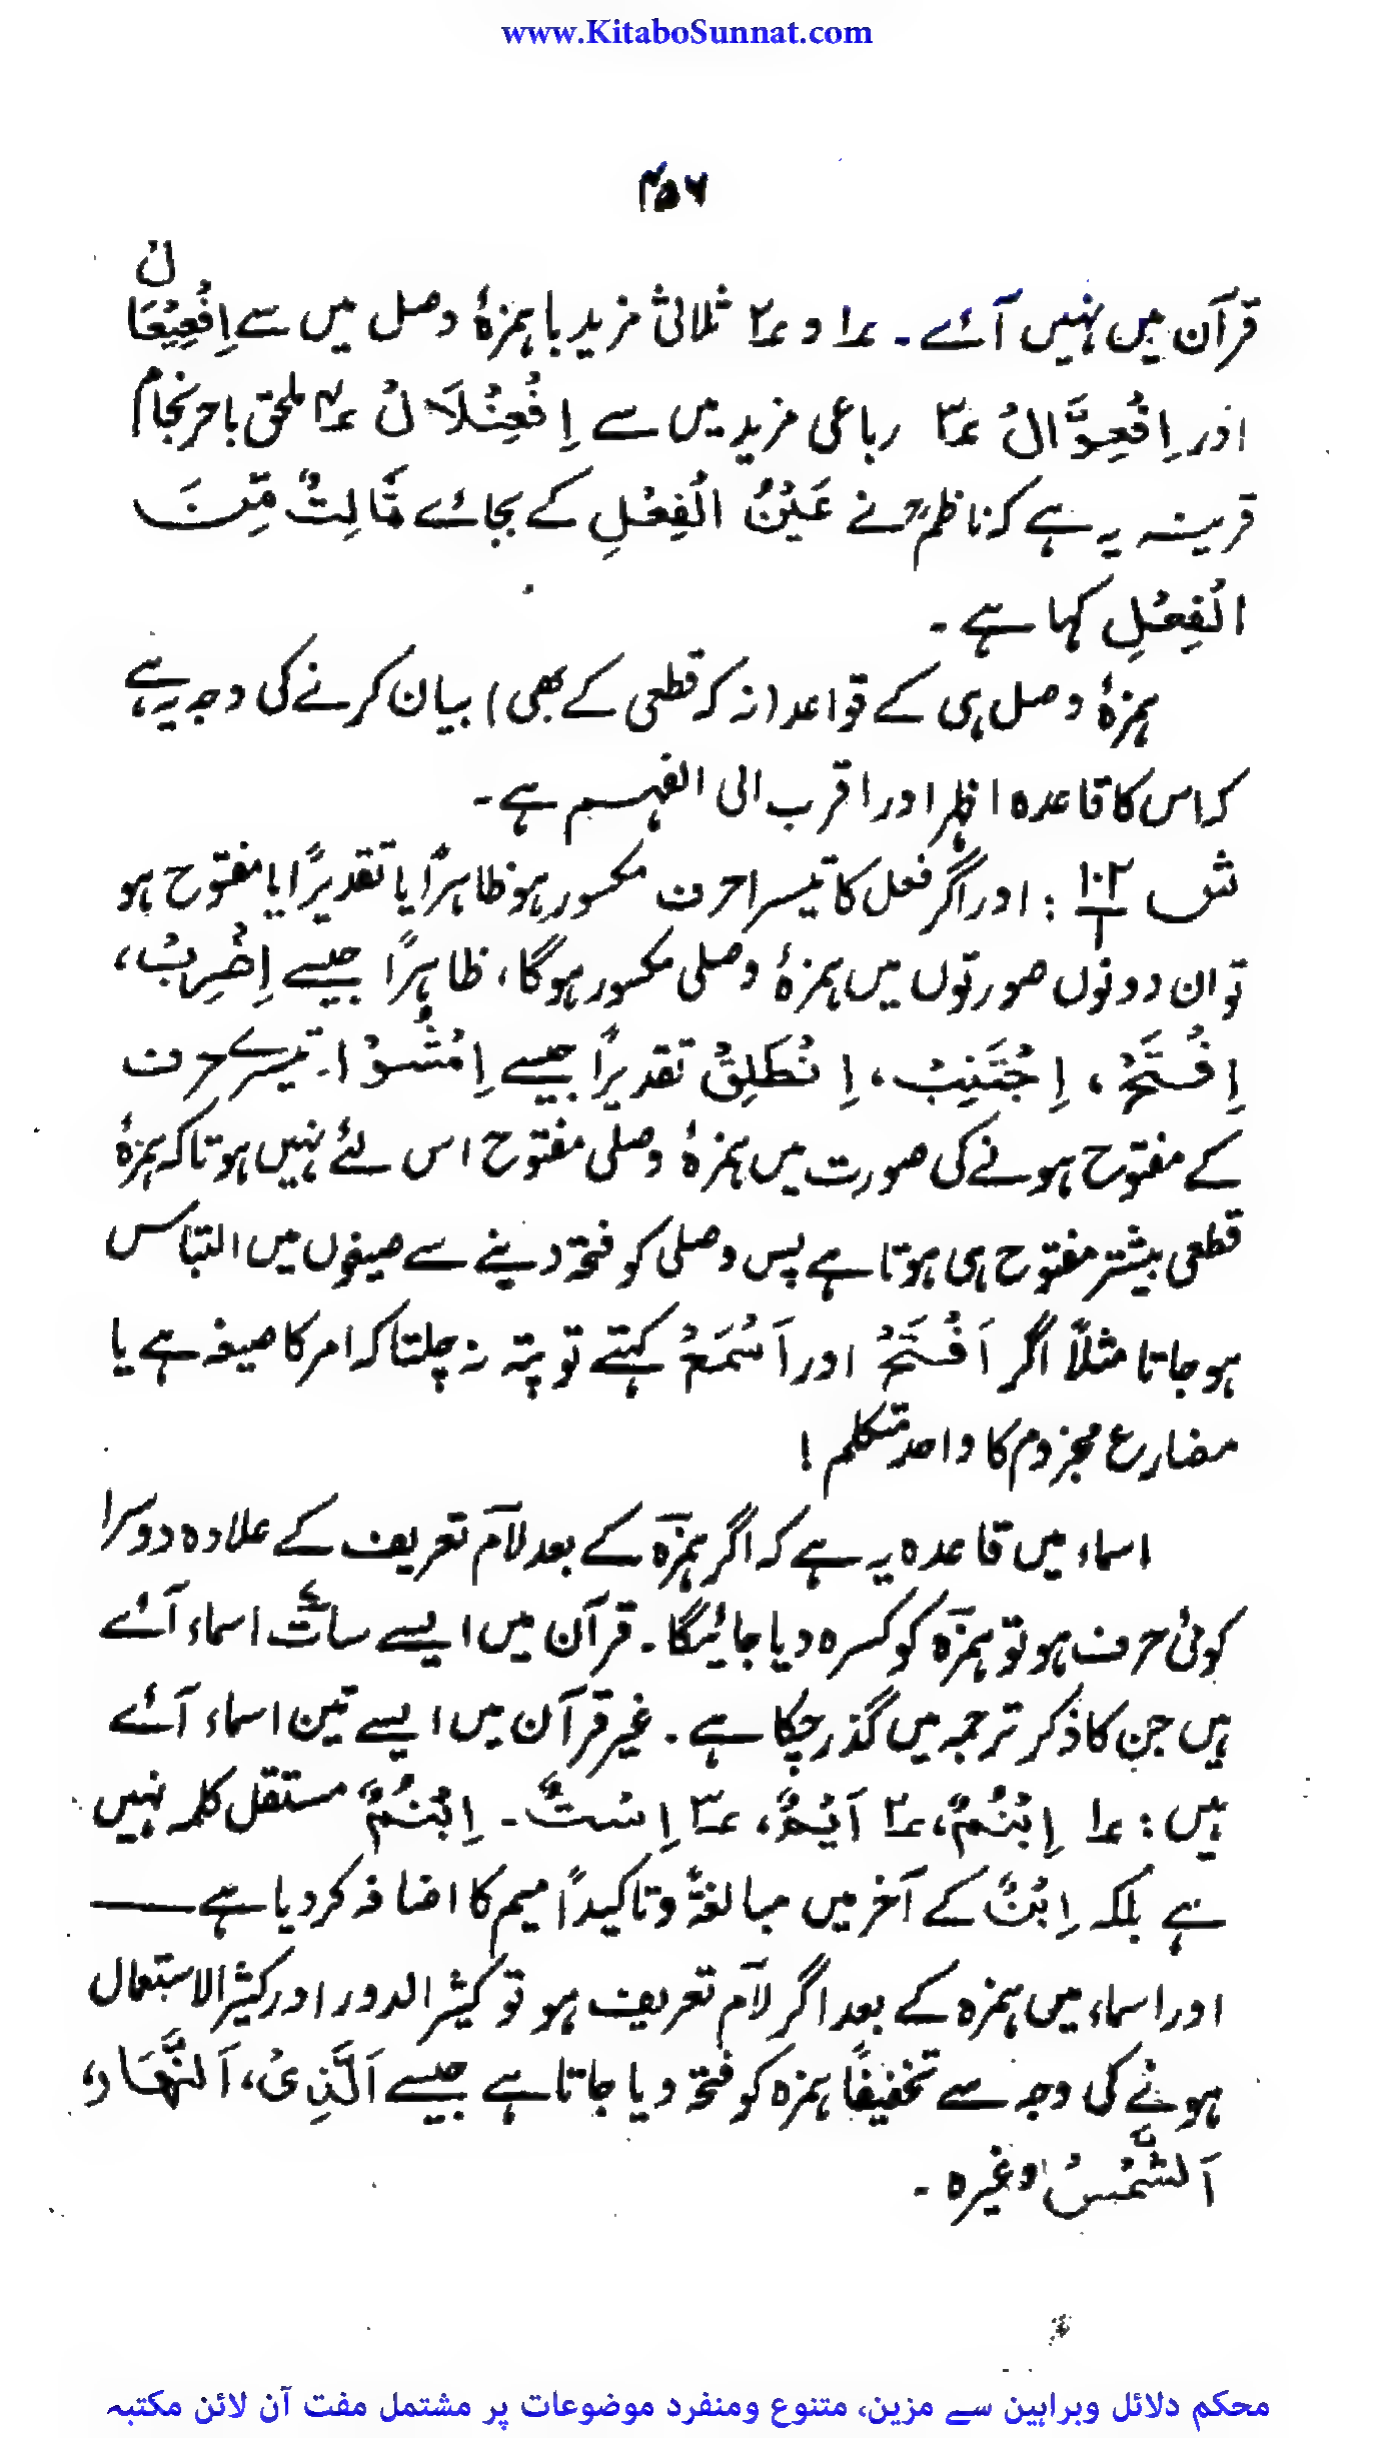 www.KitaboSunnat.com
۴۵۶
قرآن میں نہیں آئے۔ ؏۱ و ؏۲ ثلاثی مزید باہمزۂ وصل میں سے اِفْعِیْعَالٌ
اور اِفْعِوَّالٌ ؏۳ رباعی مزید میں سے اِفْعِنْلَالٌ ؏۴ ملحق باحرنجام
قرینہ یہ ہے کہ ناظمؒ نے عَیْنُ الْفِعْلِ کے بجائے ثَالِثٌ مِّنَ
الْفِعْلِ کہا ہے۔
ہمزۂ وصل ہی کے قواعد (نہ کہ قطعی کے بھی) بیان کرنے کی وجہ یہ ہے
کہ اس کا قاعدہ اظہر اور اقرب الی الفہم ہے۔
ش ۱۰۲/۱ : اور اگر فعل کا تیسرا حرف مکسور ہو ظاہراً یا تقدیراً یا مفتوح ہو
تو ان دونوں صورتوں میں ہمزۂ وصلی مکسور ہوگا، ظاہراً جیسے اِضْرِبْ،
اِفْتَحْ، اِجْتَنِبْ، اِنْطَلِقْ تقدیراً جیسے اِمْشُوْا۔ تیسرے حرف
کے مفتوح ہونے کی صورت میں ہمزۂ وصلی مفتوح اس لئے نہیں ہوتا کہ ہمزۂ
قطعی بیشتر مفتوح ہی ہوتا ہے پس وصلی کو فتحہ دینے سے صیغوں میں التباس
ہو جاتا مثلاً اگر اَفْتَحْ اور اَسْمَعْ کہتے تو پتہ نہ چلتا کہ امر کا صیغہ ہے یا
مضارع مجزوم کا واحد متکلم !
اسماء میں قاعدہ یہ ہے کہ اگر ہمزہ کے بعد لام تعریف کے علاوہ دوسرا
کوئی حرف ہو تو ہمزہ کو کسرہ دیا جائیگا۔ قرآن میں ایسے سات اسماء آئے
ہیں جن کا ذکر ترجمہ میں گذر چکا ہے۔ غیر قرآن میں ایسے تین اسماء آئے
ہیں : ؏۱ اِبْنُمٌ، ؏۲ اَیْمٌ، ؏۳ اِسْتٌ۔ اِبْنُمٌ مستقل کلمہ نہیں
ہے بلکہ اِبْنٌ کے آخر میں مبالغۃً و تاکیداً میم کا اضافہ کر دیا ہے ——
اور اسماء میں ہمزہ کے بعد اگر لام تعریف ہو تو کثیر الدور اور کثیر الاستعمال
ہونے کی وجہ سے تخفیفاً ہمزہ کو فتحہ دیا جاتا ہے جیسے اَلَّذِیْ، اَلنَّهَارُ،
اَلشَّمْسُ وغیرہ۔
محکم دلائل وبراہین سے مزین، متنوع ومنفرد موضوعات پر مشتمل مفت آن لائن مکتبہ